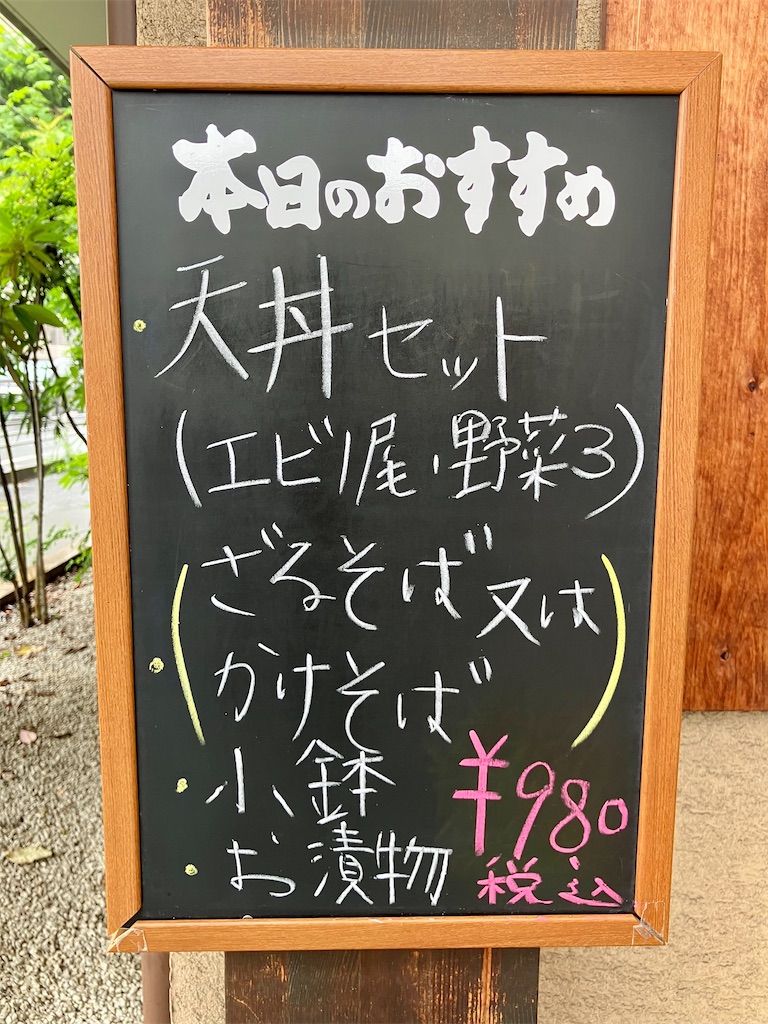 本日のおすすめ
天丼セット
(エビ1尾・野菜3)
(ざるそば又は
かけそば)
小鉢
お漬物
¥980
税込